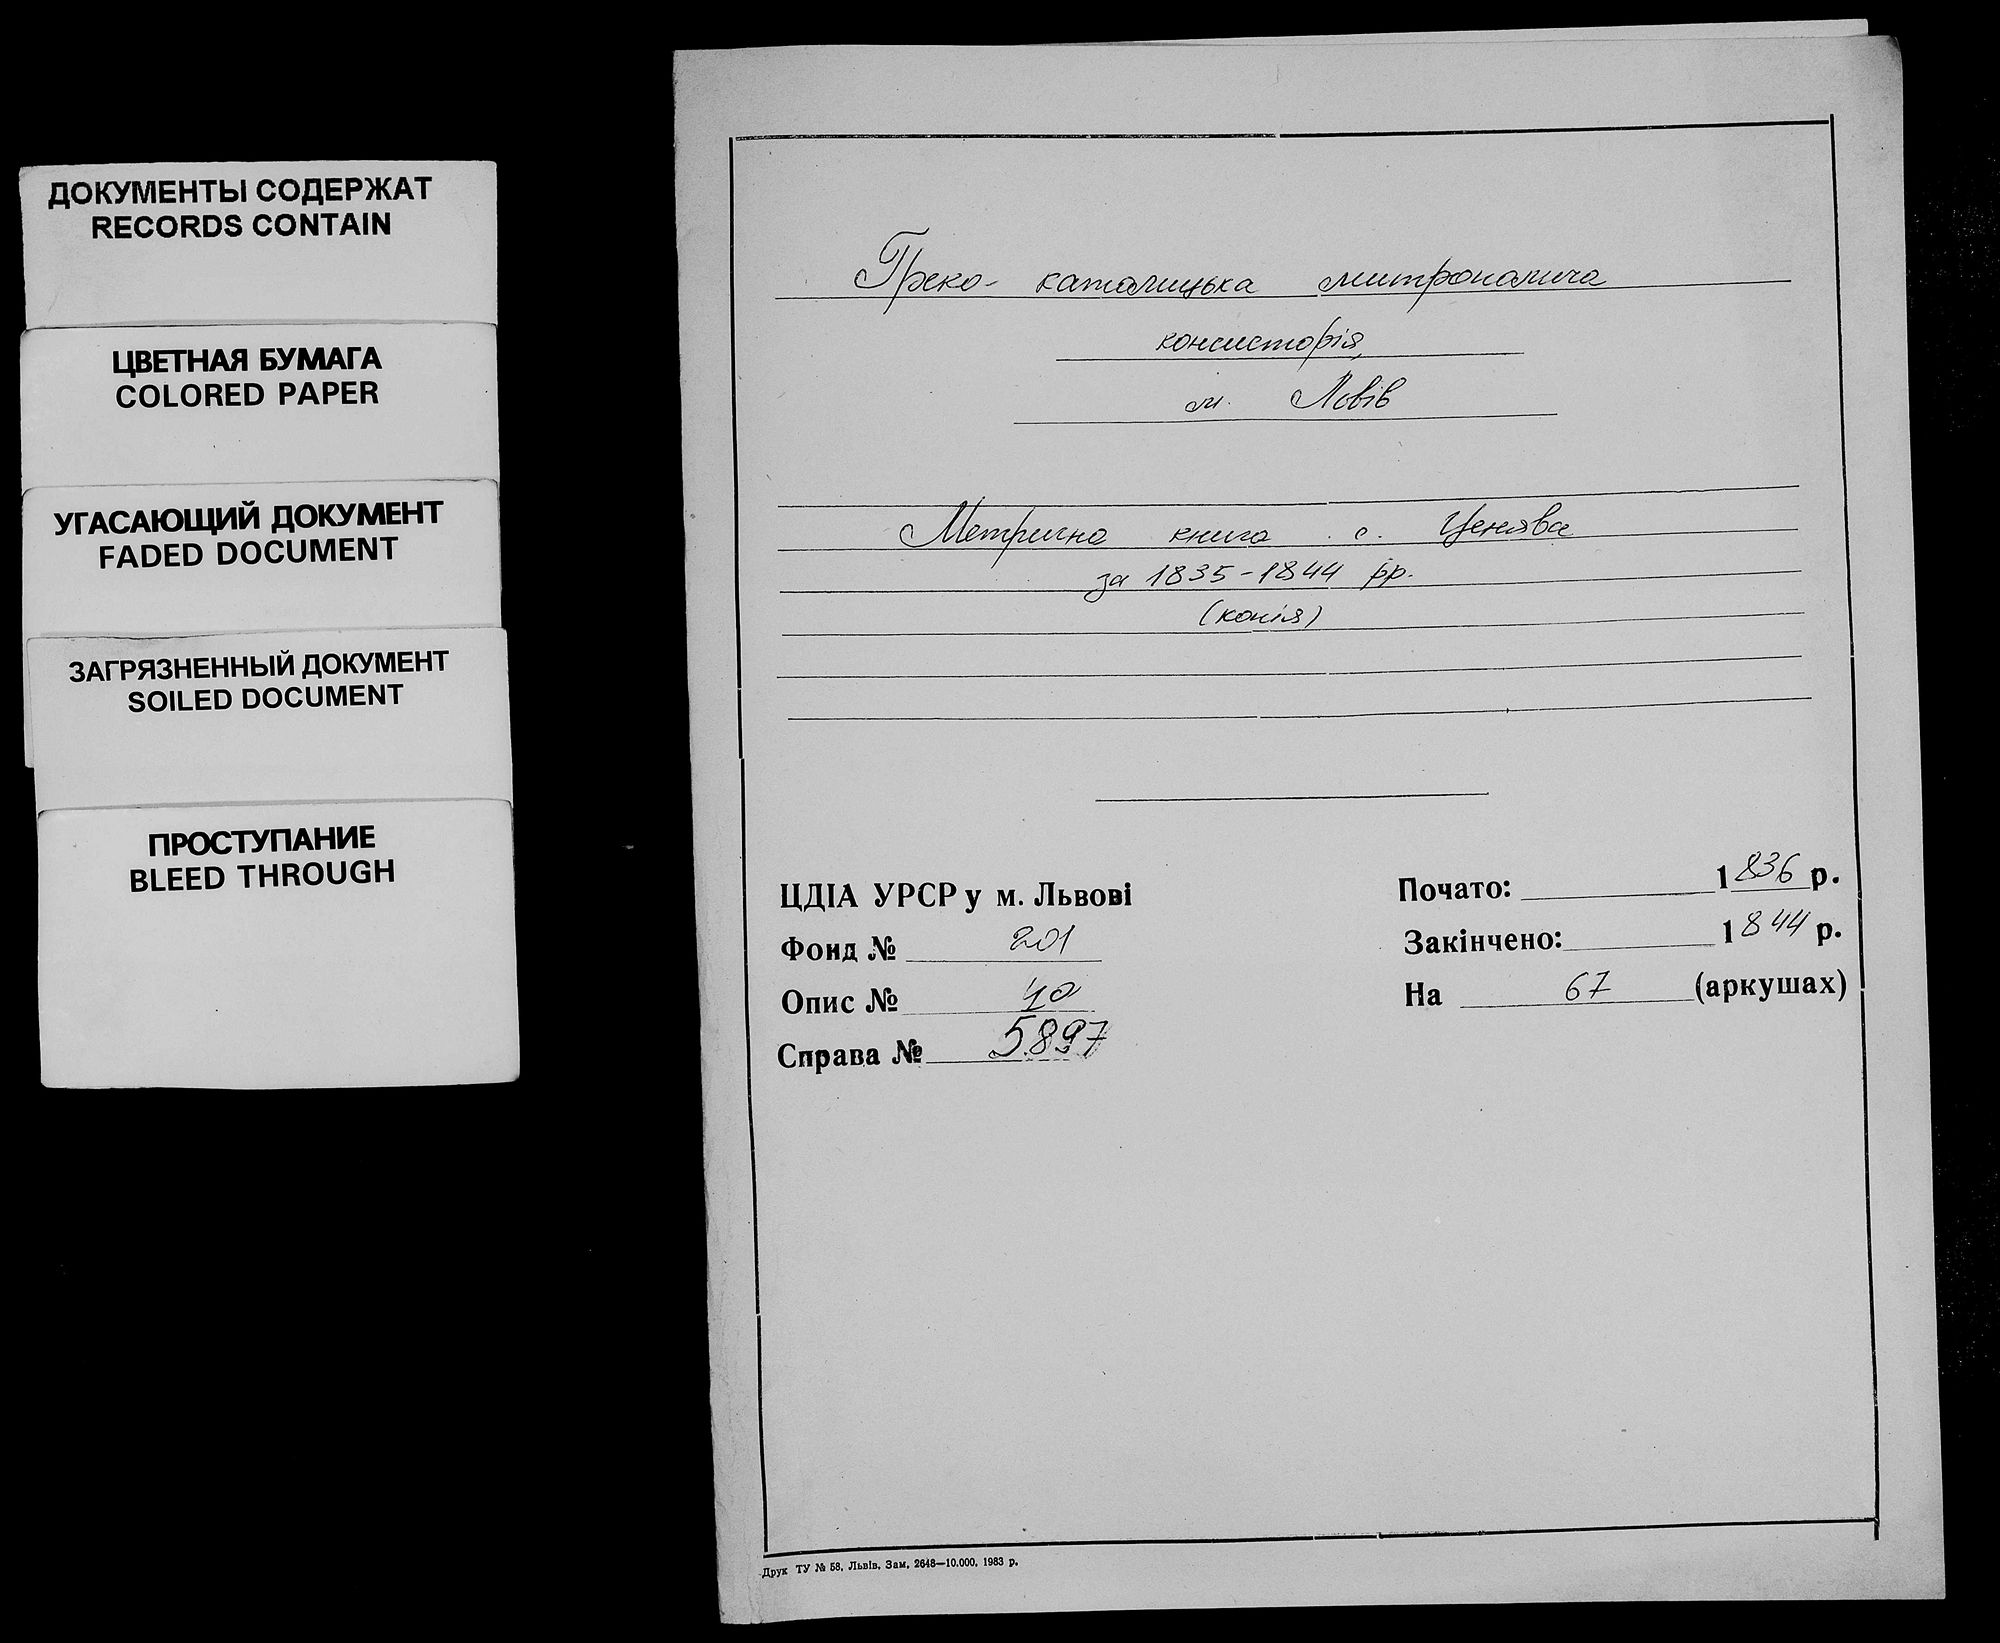 ДОКУМЕНТЫ СОДЕРЖАТ
RECORDS CONTAIN
ЦВЕТНАЯ БУМАГА
COLORED PAPER
УГАСАЮЩИЙ ДОКУМЕНТ
FADED DOCUMENT
ЗАГРЯЗНЕННЫЙ ДОКУМЕНТ
SOILED DOCUMENT
ПРОСТУПАНИЕ
BLEED THROUGH
Греко-католицька митрополича
консисторія,
м. Львів
Метрична книга с. Ценява
за 1835-1844 рр.
(копія)
ЦДІА УРСР у м. Львові
Фонд № 201
Опис № 4а
Справа № 5897
Почато: 1836 р.
Закінчено: 1844 р.
На 67 (аркушах)
Друк ТУ № 58, Львів, Зам, 2648—10.000, 1983 р.